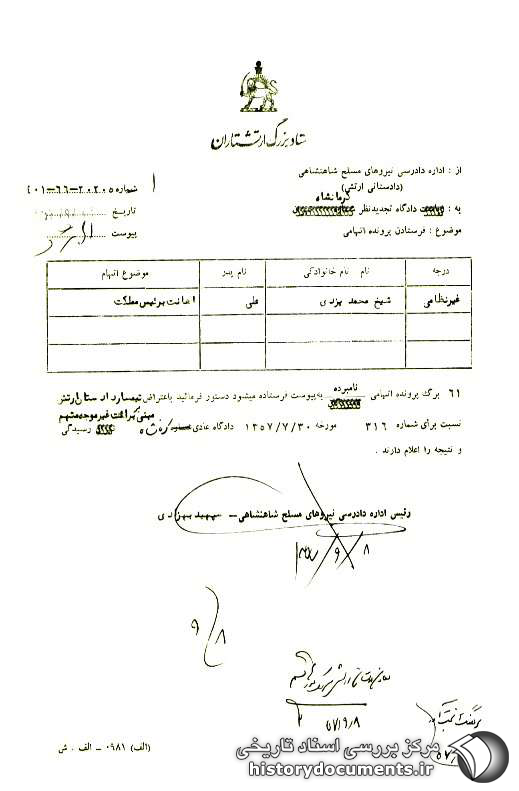 ستاد بزرگ ارتشتاران
از : اداره دادرسی نیروهای مسلح شاهنشاهی
(دادستانی ارتش)
کرمانشاه
به : دادگاه تجدیدنظر
موضوع : فرستادن پرونده اتهامی
شماره ۲۰۲۰۵-۶۶-۴۰۱
تاریخ
پیوست
درجه نام نام خانوادگی نام پدر موضوع اتهام
غیرنظامی شیخ محمد یزدی علی اهانت برئیس مملکت
نامبرده
۶۱ برگ پرونده اتهامی به پیوست فرستاده میشود دستور فرمائید باعتراض تیمسار دادستان ارتش
مبنی بر برائت غیرموجه متهم
نسبت برای شماره ۳۱۶ مورخه ۱۳۵۷/۷/۳۰ دادگاه عادی کرمانشاه رسیدگی
و نتیجه را اعلام دارند .
رئیس اداره دادرسی نیروهای مسلح شاهنشاهی - سپهبد بهزادی
۹/۸
۵۷/۹/۸
(الف) ۰۹۸۱ - الف . ش
مرکز بررسی اسناد تاریخی
historydocuments.ir